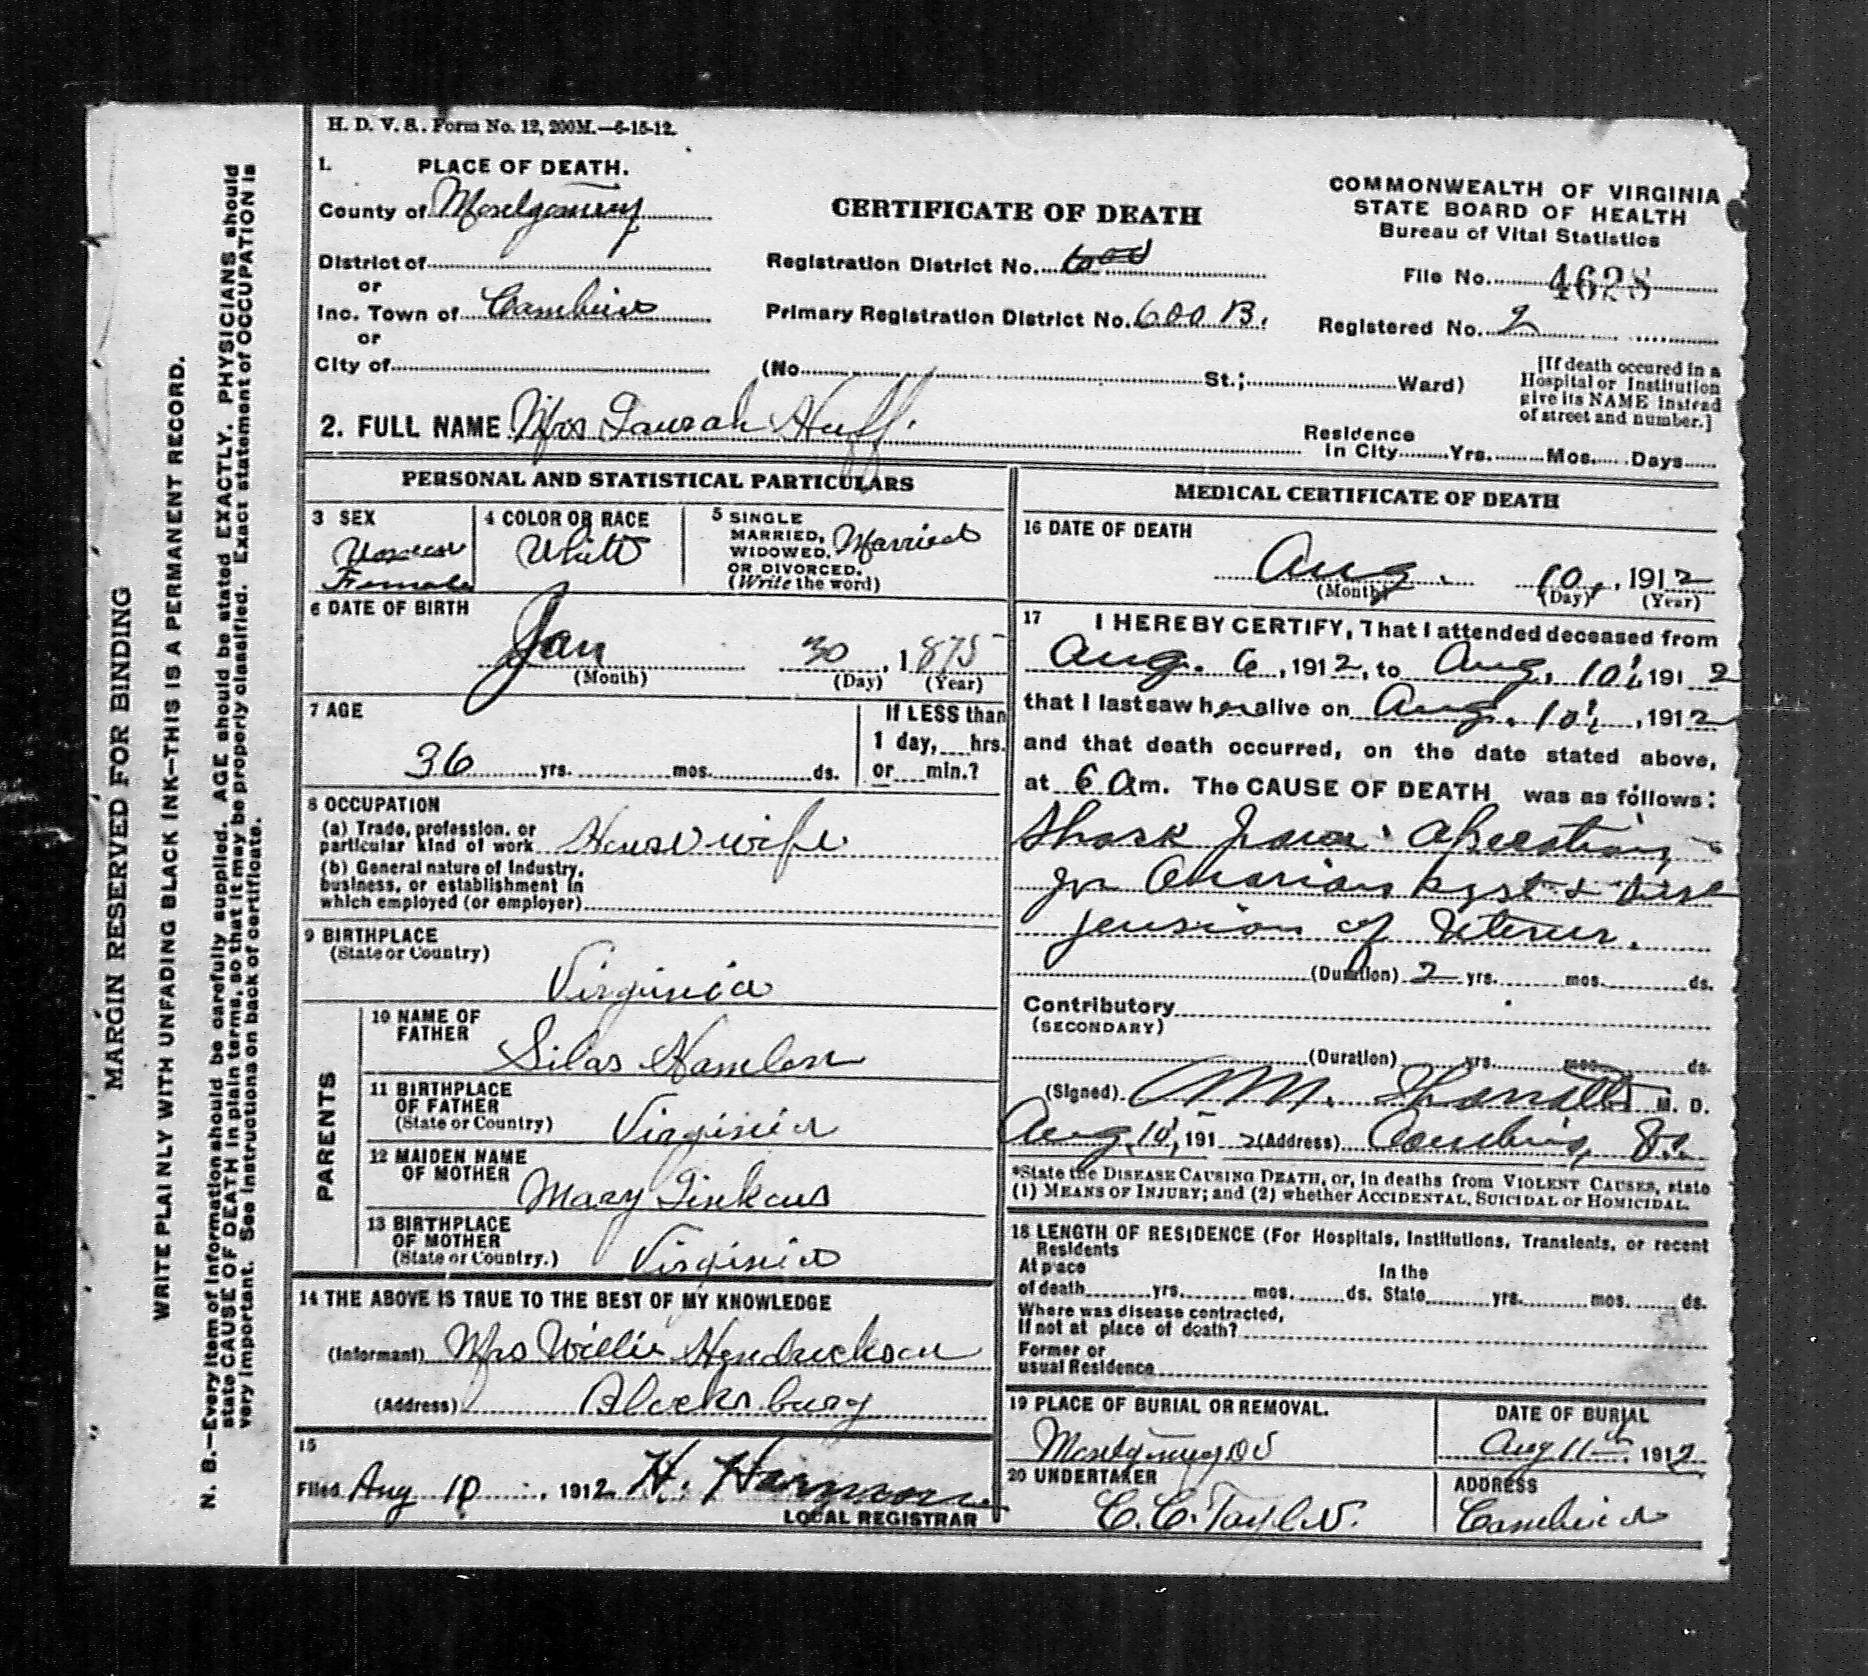 H. D. V. S. Form No. 12, 200M.—6-15-12.
1. PLACE OF DEATH.
County of Montgomery
District of
or
Inc. Town of Cambria
or
City of
CERTIFICATE OF DEATH
Registration District No. 600
Primary Registration District No. 600 B.
(No. St.; Ward)
COMMONWEALTH OF VIRGINIA
STATE BOARD OF HEALTH
Bureau of Vital Statistics
File No. 4628
Registered No. 2
[If death occured in a
Hospital or Institution
give its NAME instead
of street and number.]
2. FULL NAME Mrs Huff.
Residence
in City Yrs. Mos. Days
PERSONAL AND STATISTICAL PARTICULARS
3 SEX
Female
4 COLOR OR RACE
White
5 SINGLE
MARRIED,
WIDOWED,
OR DIVORCED.
(Write the word)
Married
6 DATE OF BIRTH
Jan 30, 1875
(Month) (Day) (Year)
7 AGE
36 yrs. mos. ds.
If LESS than
1 day, hrs.
or min.?
8 OCCUPATION
(a) Trade, profession, or
particular kind of work Housewife
(b) General nature of Industry,
business, or establishment in
which employed (or employer)
9 BIRTHPLACE
(State or Country)
Virginia
PARENTS
10 NAME OF
FATHER
Silas Hamlon
11 BIRTHPLACE
OF FATHER
(State or Country) Virginia
12 MAIDEN NAME
OF MOTHER
Mary
13 BIRTHPLACE
OF MOTHER
(State or Country.) Virginia
14 THE ABOVE IS TRUE TO THE BEST OF MY KNOWLEDGE
(Informant) Mrs Willie Hendrickson
(Address) Blacksburg
15
Filed Aug 10, 1912 H. Harmon
LOCAL REGISTRAR
MEDICAL CERTIFICATE OF DEATH
16 DATE OF DEATH
Aug. 10, 1912
(Month) (Day) (Year)
17 I HEREBY CERTIFY, That I attended deceased from
Aug. 6, 1912, to Aug. 10, 1912
that I last saw her alive on Aug. 10, 1912
and that death occurred, on the date stated above,
at 6 am. The CAUSE OF DEATH was as follows:
Shock from operation
for Ovarian kyst &
of Uterus.
(Duration) 2 yrs. mos. ds.
Contributory
(SECONDARY)
(Duration) yrs. mos. ds.
(Signed) M. D.
Aug. 10, 1912 (Address) Cambria, Va.
*State the DISEASE CAUSING DEATH, or, in deaths from VIOLENT CAUSES, state
(1) MEANS OF INJURY; and (2) whether ACCIDENTAL, SUICIDAL or HOMICIDAL.
18 LENGTH OF RESIDENCE (For Hospitals, Institutions, Transients, or recent
Residents
At place In the
of death yrs. mos. ds. State yrs. mos. ds.
Where was disease contracted,
If not at place of death?
Former or
usual Residence
19 PLACE OF BURIAL OR REMOVAL.
Montgomery Co
DATE OF BURIAL
Aug 11th 1912
20 UNDERTAKER
C. C. Taylor.
ADDRESS
Cambria
MARGIN RESERVED FOR BINDING
WRITE PLAINLY WITH UNFADING BLACK INK—THIS IS A PERMANENT RECORD.
N. B.—Every item of Information should be carefully supplied. AGE should be stated EXACTLY. PHYSICIANS should
state CAUSE OF DEATH in plain terms, so that it may be properly classified. Exact statement of OCCUPATION is
very important. See instructions on back of certificate.